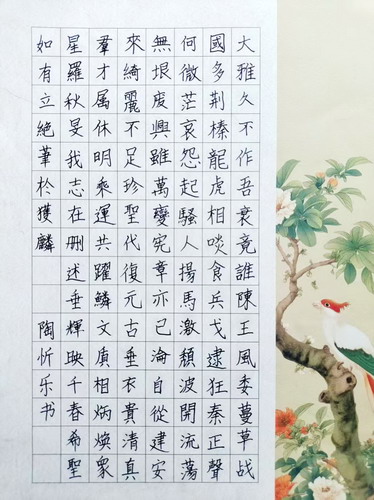 大雅久不作吾衰竟誰陳王風委蔓草战
國多荆榛龍虎相啖食兵戈逮狂秦正聲
何微茫哀怨起騷人揚馬激頹波開流蕩
無垠废興雖萬變宪章亦已淪自從建安
來綺麗不足珍聖代復元古垂衣貴清真
羣才属休明乘運共躍鱗文质相炳煥衆
星羅秋旻我志在删述垂輝映千春希聖
如有立絶筆於獲麟 陶忻乐书